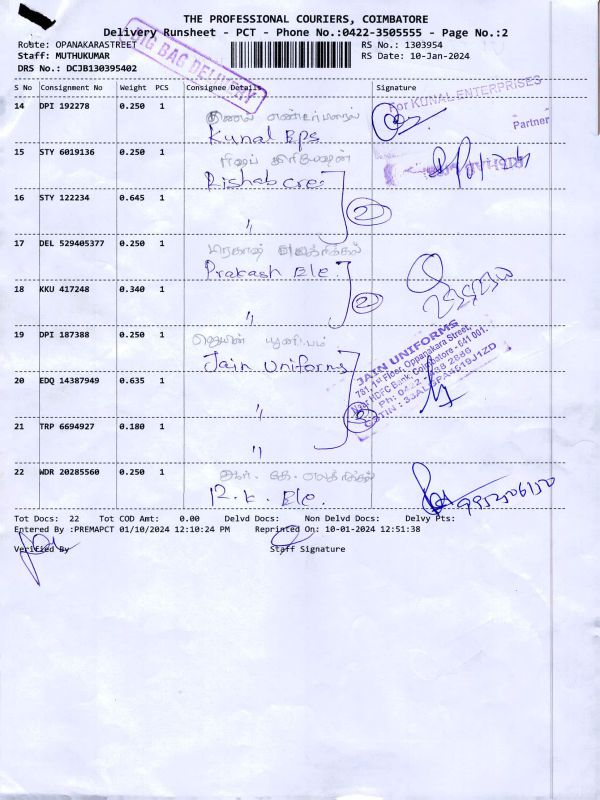 THE PROFESSIONAL COURIERS, COIMBATORE
Delivery Runsheet - PCT - Phone No.:0422-3505555 - Page No.:2
Route: OPANAKARASTREET
RS No.: 1303954
Staff: MUTHUKUMAR
RS Date: 10-Jan-2024
DRS No.: DCJB130395402
BIG BAG DELIVERY
S No Consignment No Weight PCS Consignee Details Signature
For KUNAL ENTERPRISES
14 DPI 192278 0.250 1
Kunal Eps
Partner
15 STY 6019136 0.250 1
Rishab cre.
16 STY 122234 0.645 1
" 2
17 DEL 529405377 0.250 1
Prakash Ele.
18 KKU 417248 0.340 1
" 2
19 DPI 187388 0.250 1
Jain Uniforms
JAIN UNIFORMS
781, 1st Floor, Oppanakara Street,
Near HDFC Bank, Coimbatore - 641 001.
20 EDQ 14387949 0.635 1
"
21 TRP 6694927 0.180 1
"
22 WDR 20285560 0.250 1
R.K. Ele.
Tot Docs: 22 Tot COD Amt: 0.00 Delvd Docs: Non Delvd Docs: Delvy Pts:
Entered By :PREMAPCT 01/10/2024 12:10:24 PM Reprinted On: 10-01-2024 12:51:38
Verified By Staff Signature